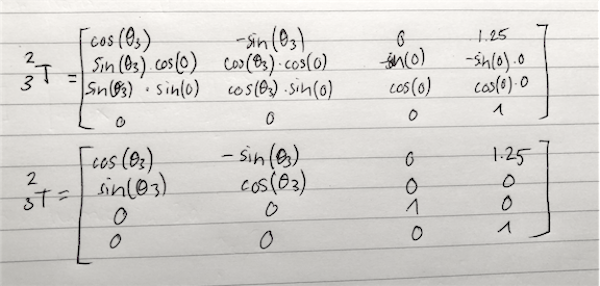 cos(θ3) -sin(θ3) 0 1.25
2 3 T = sin(θ3) · cos(0) cos(θ3) · cos(0) -sin(0) -sin(0)·0
sin(θ3) · sin(0) cos(θ3) · sin(0) cos(0) cos(0)·0
0 0 0 1
cos(θ3) -sin(θ3) 0 1.25
2 3 T = sin(θ3) cos(θ3) 0 0
0 0 1 0
0 0 0 1